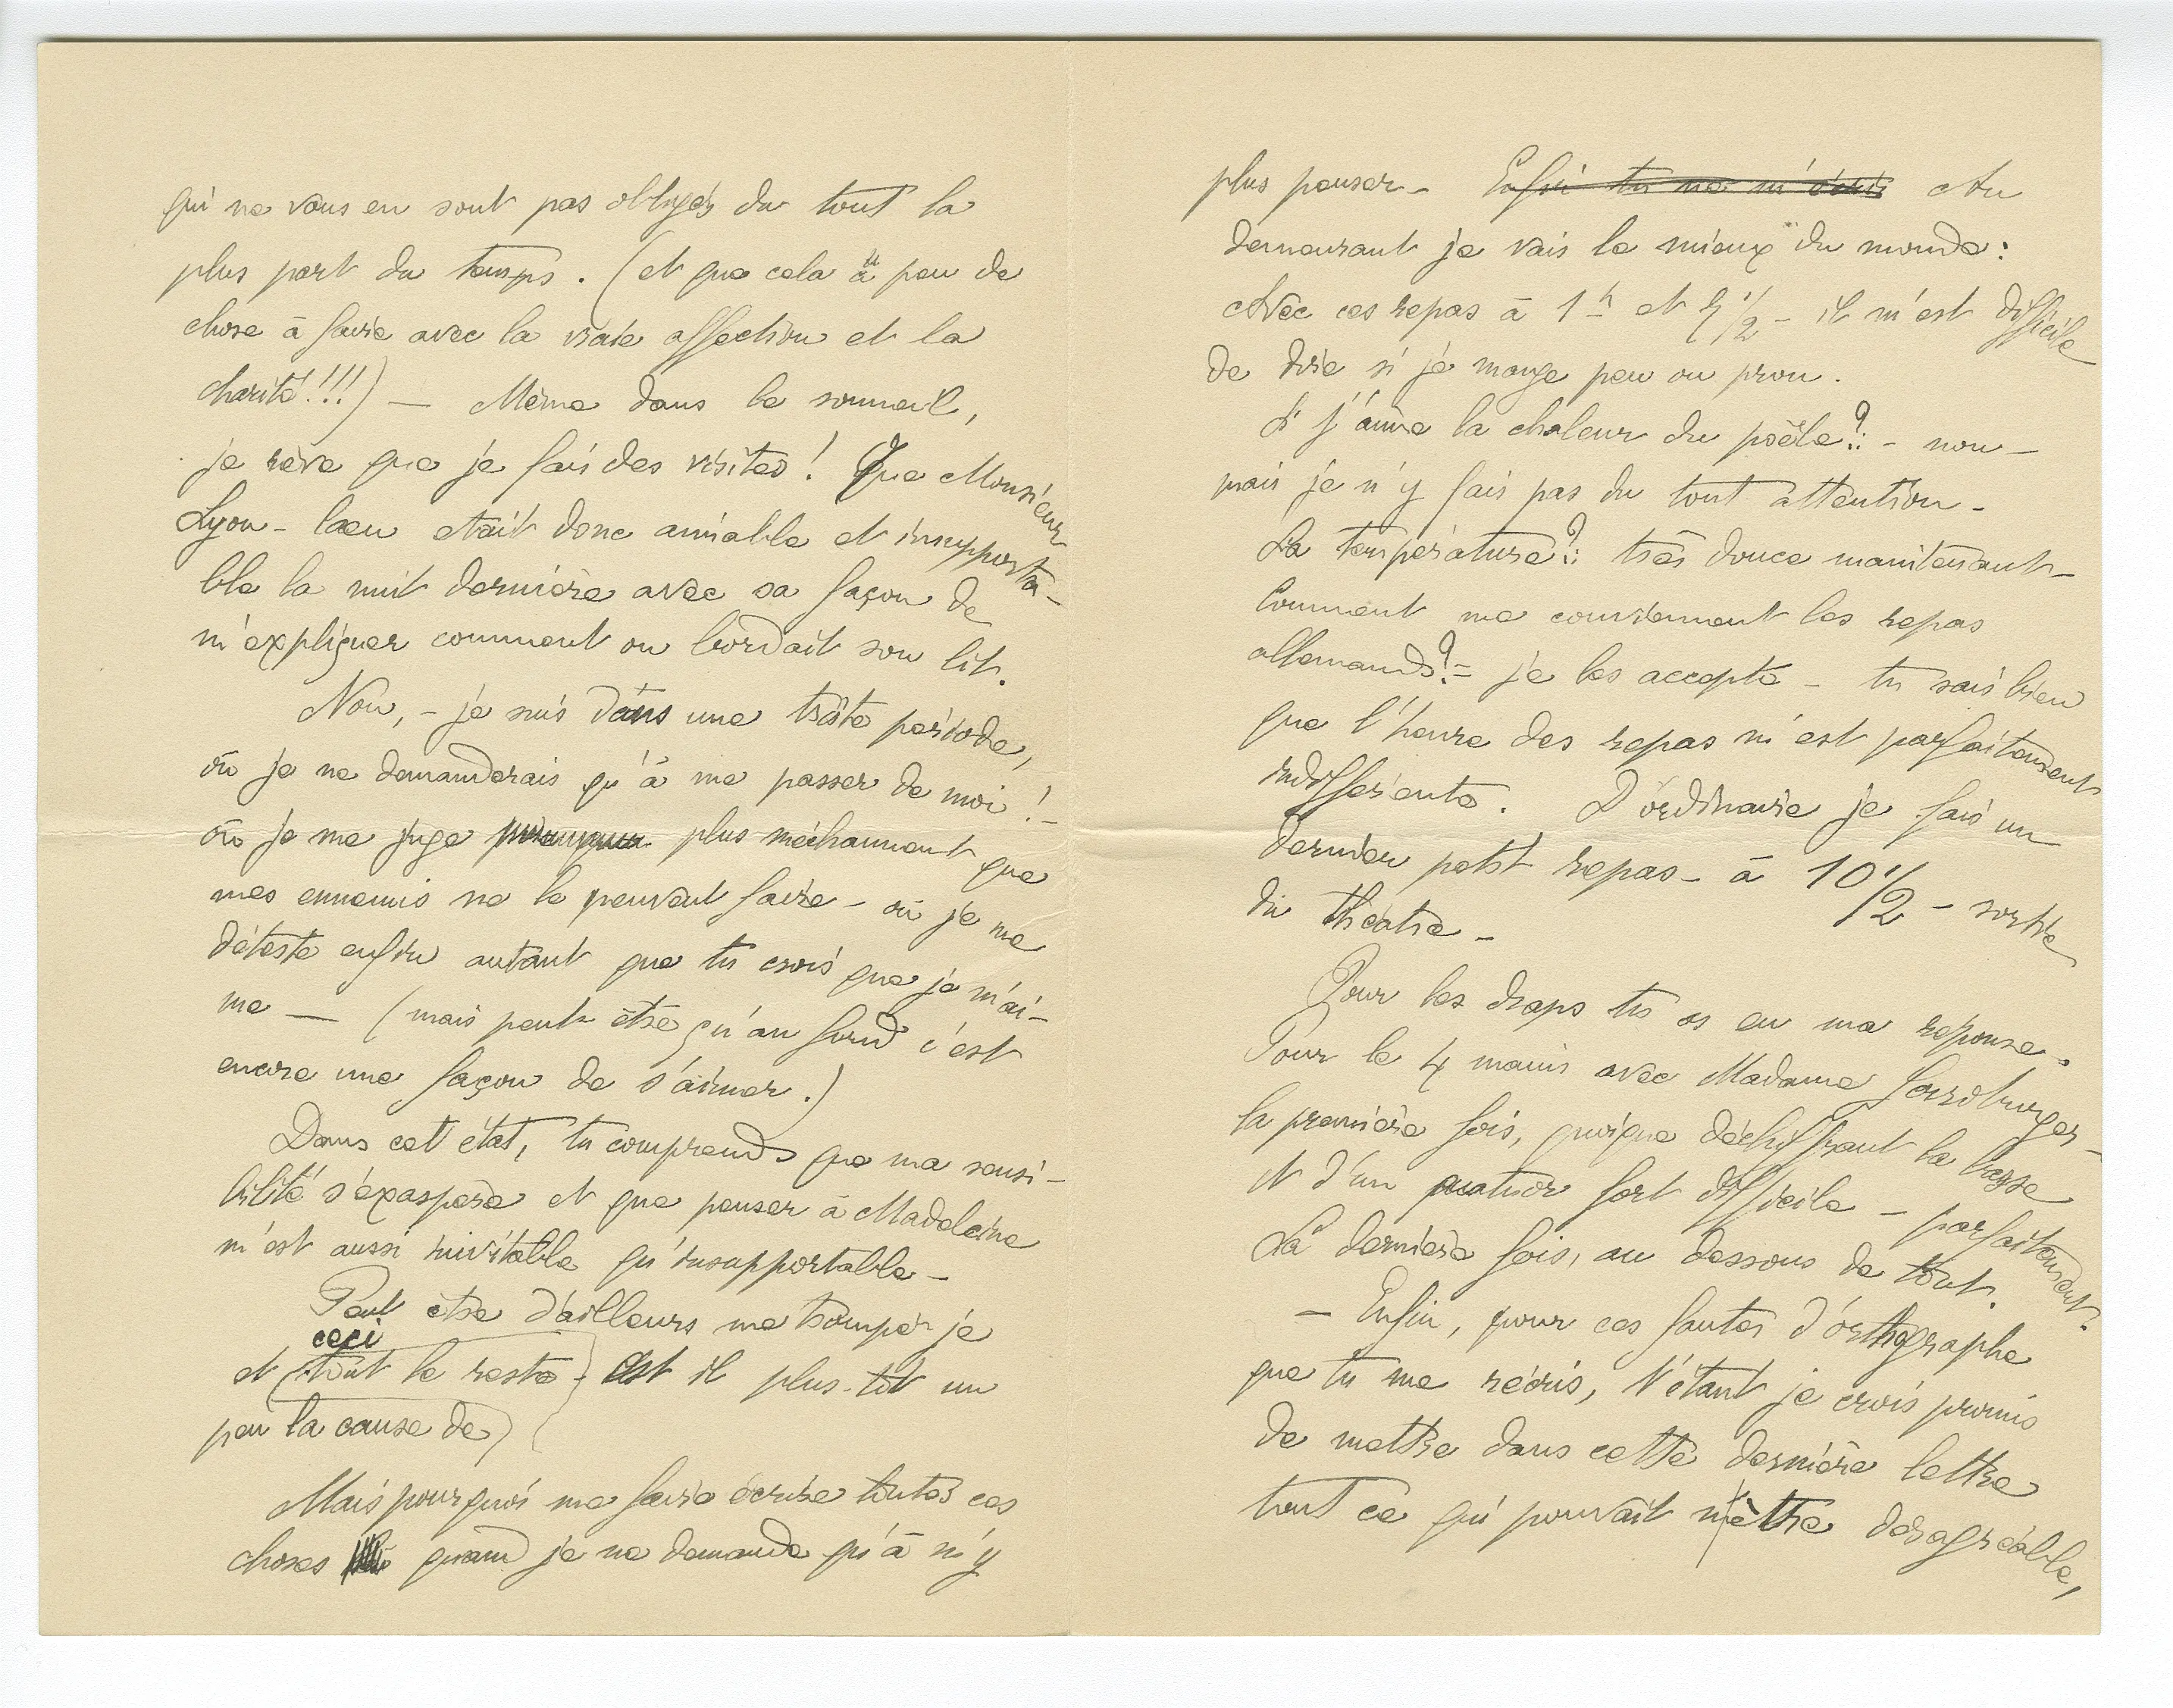 qui ne vous en sont pas obligés du tout la
plus part du temps. (et que cela a peu de
chose à faire avec la vraie affection et la
charité!!!) — Même dans le sommeil,
je rêve que je fais des visites! Que Monsieur
Lyon-laeu etait donc aimable et insupporta-
ble la nuit dernière avec sa façon de
m'expliquer comment on bordait son lit.
Non, - je suis dans une triste période,
où je ne demanderais qu'à me passer de moi!-
où je me juge plus méchamment que
mes ennemis ne le peuvent faire - où je me
déteste enfin autant que tu crois que je m'ai-
me — (mais peut être qu'au fond c'est
encore une façon de s'aimer.)
Dans cet état, tu comprends que ma sensi-
bilité s'exaspère et que penser à Madeleine
m'est aussi inévitable qu'insupportable -
Peut être d'ailleurs me trompé-je
ceci
et (tout le reste) est il plus-tôt un
peu la cause de)
Mais pourquoi me faire écrire toutes ces
choses quand je ne demande qu'à n'y
plus penser - Enfin tu ne m'écris Au
demeurant je vais le mieux du monde:
Avec ces repas à 1h et 7½ - il m'est difficile
de dire si je mange peu ou prou.
Si j'aime la chaleur du poêle?: - non -
mais je n'y fais pas du tout attention -
La température?: très douce maintenant -
Comment me conviennent les repas
allemands? - je les accepte - tu sais bien
que l'heure des repas m'est parfaitement
indifférente. D'ordinaire je fais un
dernier petit repas - à 10½ - sortie
du théatre -
Pour les draps tu as eu ma réponse -
Pour le 4 mains avec Madame
la première fois, quoique déchiffrant la basse
et d'un quatuor fort difficile - parfaitement.
La dernière fois, au dessous de tout.
- Enfin, pour ces fautes d'orthographe
que tu me récris, t'étant je crois promis
de mettre dans cette dernière lettre
tout ce qui pouvait m'être désagréable,